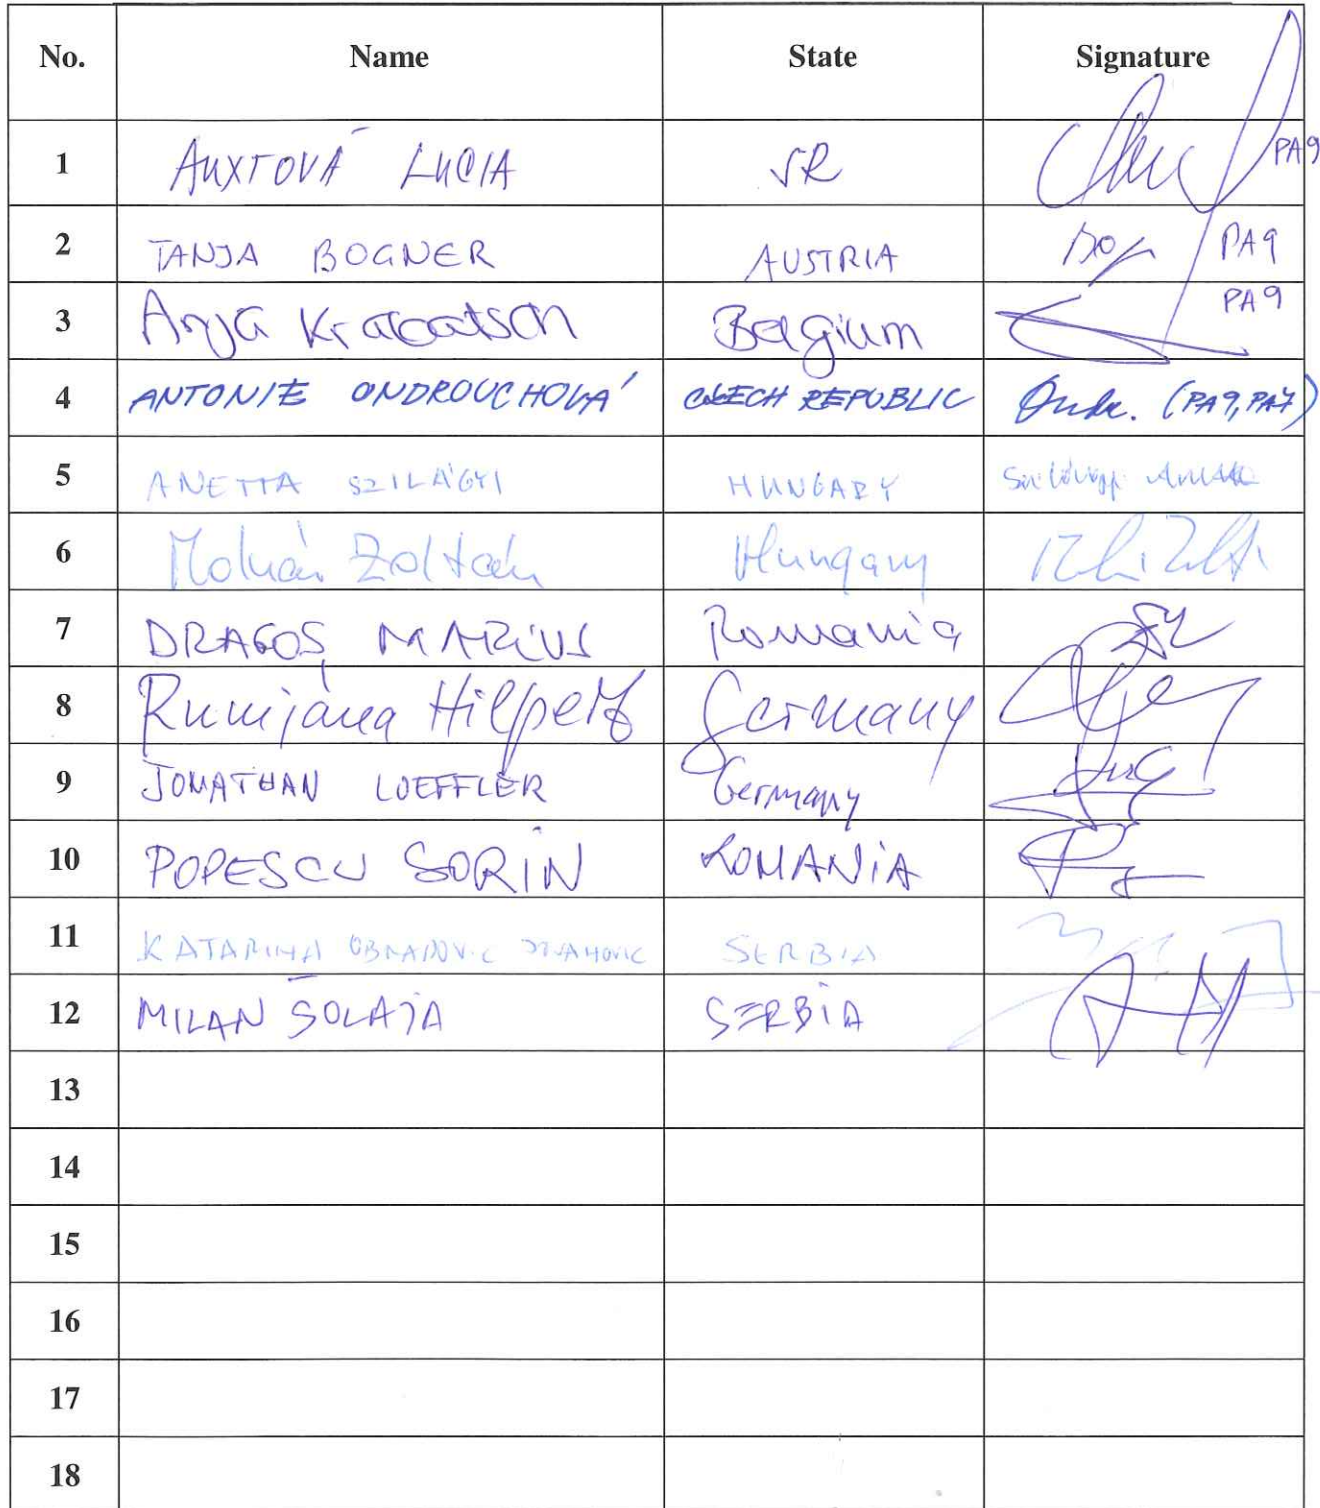 No. Name State Signature
1 AUXTOVÁ LUCIA SR PA9
2 TANJA BOGNER AUSTRIA PA9
3 Anja Krabatsch Belgium PA9
4 ANTONIE ONDROUCHOVÁ CZECH REPUBLIC Ondr. (PA9, PA7)
5 ANETTA SZILÁGYI HUNGARY Szilágyi Anetta
6 Molnár Zoltán Hungary
7 DRAGOȘ MARIUS Romania
8 Rumijana Hilpert Germany
9 JONATHAN LOEFFLER Germany
10 POPESCU SORIN ROMANIA
11 KATARINA OBRADOVIC SERBIA
12 MILAN ŠOLAJA SERBIA
13
14
15
16
17
18